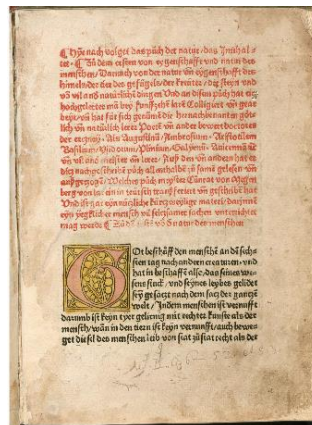 ¶ Hye nach volget das půch der natur, das Innhal/
tet. ¶ Zů dem ersten von eygenschafft vnd natur des
menschen, Darnach von der natur vnd eygenschafft der
himel, der tier des gefügels, der kreüter, der steyn vnd
von vil andern natürlichen dingen Vnd an disem půch hat ein
hochgelerter man bey funfftzehen iaren Colligiert vnd gear
beyt, vnd hat für sich genummen die hernachbenanten
lich vnd natürlich lerer Poeten vnd ander bewert doctores
der ertzney, Als Augustinum Ambrosium, Aristotilem
Basilium, Plinium, Galienum, Auicennam vnd
vnd vil ander meister vnd lerer, Auß den vnd andern hat er
diß nachgeschriben půch
außgezogen, Welches půch meyster Cůnrat von Megen
berg von latein in teutsch transferiert vnd geschriben hat
Vnd ist gar ein nützliche kürtzweylige materi, darinne
eyn yegklicher mensch vil seltzsamer sachen vnterrichtet
mag werden ¶ Zů dem von der natur des menschen
GOt beschůff den menschen an dem sechs
sten tag nach andern creaturen, vnd
hat in beschaffen also, das seines we
sens stuck, vnd seynes leybes gelider
sey gesatzt nach dem satz der gantzen
welt, Indem menschen ist vernunfft
darumb ist keyn tyer gelernig mit rechter kunste als der
mensch, wann in den tieren ist keyn vernunfft, auch bewe
get die sel des menschen leib von stat zů stat recht als der